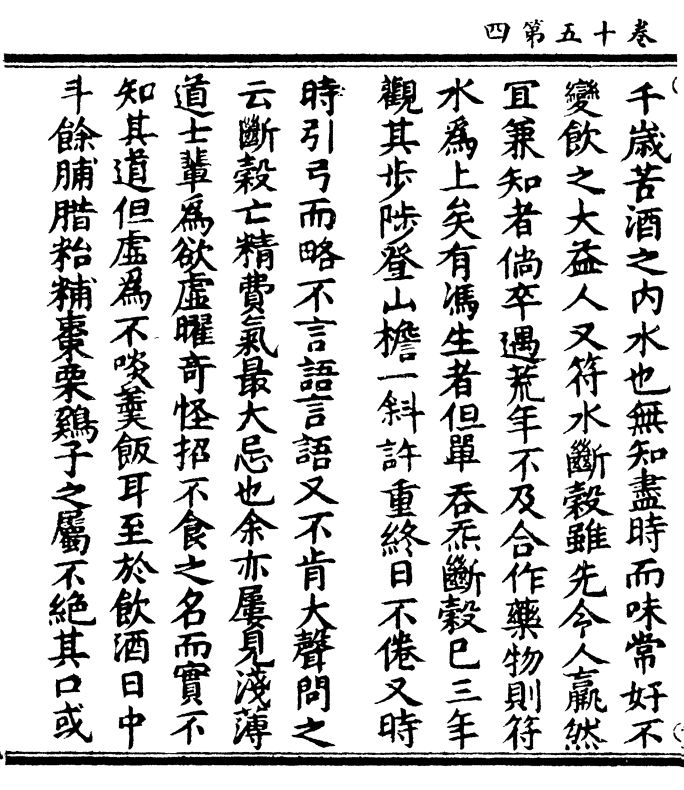 卷十五第四
千歲苦酒之内水也無知盡時而味常好不
變飲之大益人又符水斷穀雖先令人羸然
宜兼知者倘卒遇荒年不及合作藥物則符
水爲上矣有馮生者但單吞炁斷穀已三年
觀其步陟登山擔一斜許重終日不倦又時
時引弓而略不言語言語又不肯大聲問之
云斷穀亡精費氣最大忌也余亦屢見淺薄
道士輩爲欲虛曜奇怪招不食之名而實不
知其道但虛爲不啖羹飯耳至於飲酒日中
斗餘脯腊粘糒棗栗鷄子之屬不絕其口或